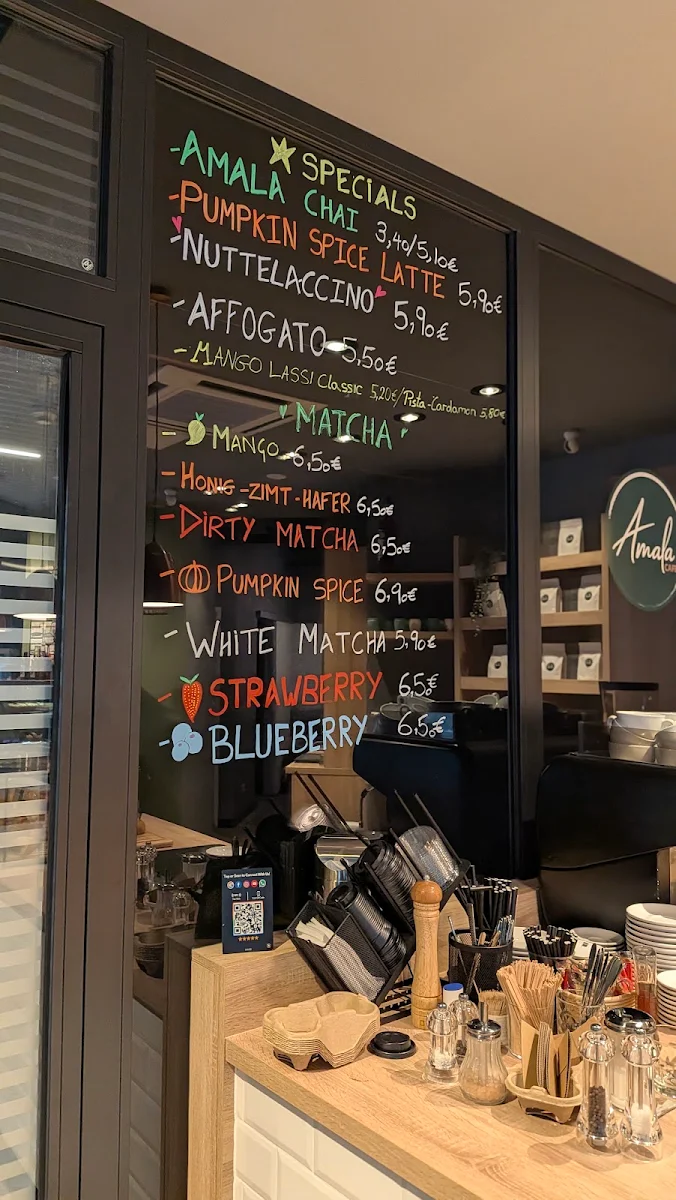 SPECIALS
-AMALA CHAI 3,40/5,10€
-PUMPKIN SPICE LATTE 5,90€
-NUTTELACCINO 5,90€
-AFFOGATO 5,50€
-MANGO LASSI Classic 5,20€/Pista-Cardamon 5,80€
MATCHA
-MANGO 6,50€
-HONIG-ZIMT-HAFER 6,50€
-DIRTY MATCHA 6,50€
-PUMPKIN SPICE 6,90€
-WHITE MATCHA 5,90€
-STRAWBERRY 6,50€
-BLUEBERRY 6,50€
Amala
CAFE